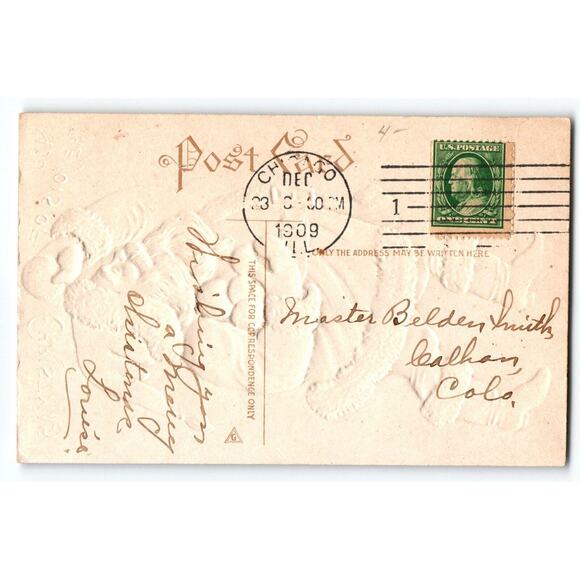 4-
Post Card
CHICAGO
DEC
23
1909
ILL.
1
U.S. POSTAGE
ONLY THE ADDRESS MAY BE WRITTEN HERE
THIS SPACE FOR CORRESPONDENCE ONLY
Wishing you
a Merry
Christmas
Louise.
Master Belden Smith,
Calhan,
Colo.
G